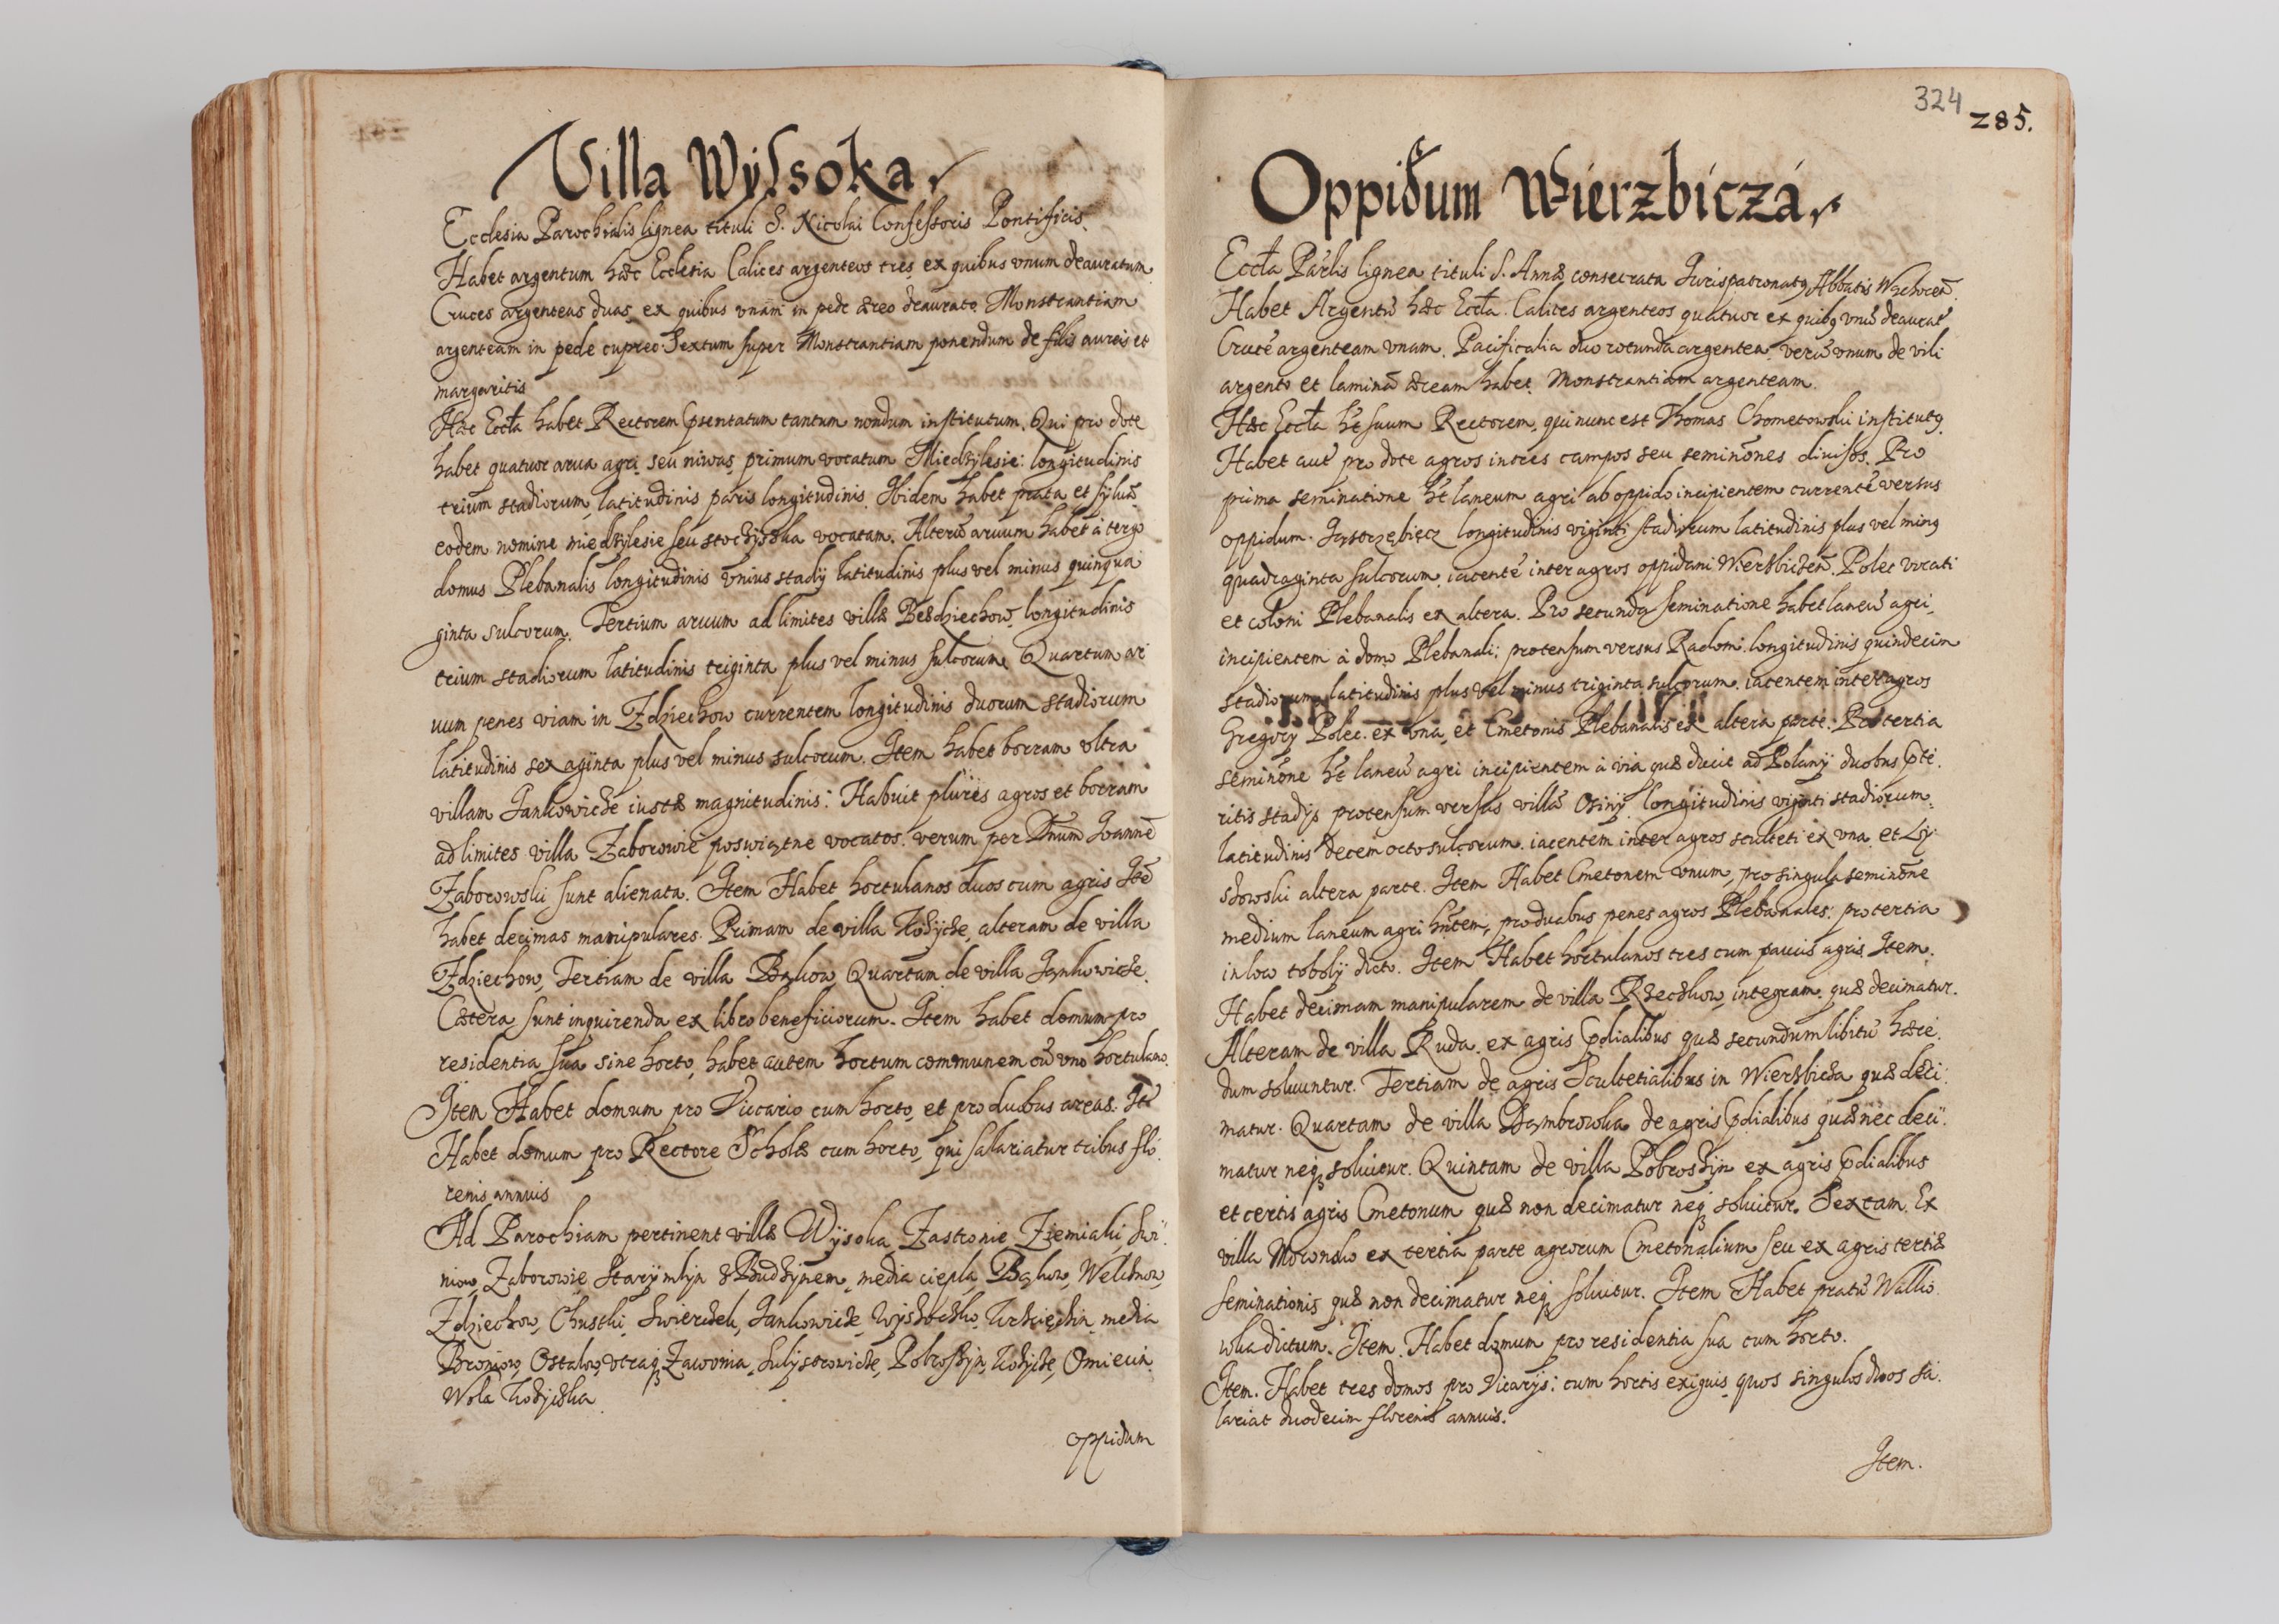 Villa Wÿssoka
Ecclesia Parochialis lignea tituli S. Nicolai Confessoris Pontificis.
Habet argentum hæc Ecclesia Calices argenteos tres ex quibus vnum deauratum
Cruces argenteas duas, ex quibus vnam in pede æreo deaurato. Monstrantiam
argenteam in pede cupreo. Textum super Monstrantiam ponendum de filis aureis et
margaritis
Hæc Eccła habet Rectorem pſentatum tantum nondum institutum. Qui pro dote
habet quatuor arua agri seu niwas, primum vocatum Miedzylesie: longitudinis
trium stadiorum, latitudinis paris longitudinis. Ibidem habet prata et syluā
eodem nomine miedzylesie seu vocatam. Alterū aruum habet à tergo
domus Plebanalis longitudinis vnius stadÿ latitudinis plus vel minus quinqua
ginta sulcorum. Tertium aruum ad limites villæ longitudinis
trium stadiorum latitudinis triginta plus vel minus sulcorum. Quartum ar
uum penes viam in Zdziechow currentem longitudinis duorum stadiorum
latitudinis sexaginta plus vel minus sulcorum. Item habet borram vltra
villam Jankowicze iustæ magnitudinis: Habuit plures agros et borram
ad limites villa Zaborowie poswiątne vocatos. verum per Dnum Joannē
Zaborowski sunt alienata. Item Habet hortulanos duos cum agris Itē
habet decimas manipulares. Primam de villa Kozÿcze, alteram de villa
Zdziechow, Tertiam de villa Bąkow, Quartam de villa Jankowicze.
Cætera sunt inquirenda ex libro beneficiorum. Item habet domum pro
residentia sua sine horto, habet autem hortum communem cū vno hortulano.
Item Habet domum pro Viccario cum horto, et pro duobus areas. Itē
Habet domum pro Rectore Scholæ cum horto, qui salariatur tribus flo:
renis annuis
Ad Parochiam pertinent villæ Wÿsoka, Zastronie, Ziemiaki, Swi:
niow, Zaborowie, Starÿ mlÿn, media ciepla, Bąkow,
Zdziechow, Chustki, Swierczek, Jankowicze, media
Broniow, Ostalow, vtraqꝫ Zawonia, Sulistrowicze, Kozÿcze, Omiecin
Wola
oppidum
324
285.
Oppidum Wierzbiczá
Eccła Pārlis lignea tituli S. Annæ consecrata Jurispatronatꝰ Abbatis
Habet Argentū hæc Eccła. Calices argenteos quatuor ex quibꝰ vnū deaurat̄
Crucē argenteam vnam. Pacificalia duo rotunda argentea, verū vnum de vili
argento et laminā æream habet. Monstrantiam argenteam.
Hæc Eccła ht̄ suum Rectorem, qui nunc est Thomas Chometowski institutꝰ.
Habet aut̄ pro dote agros in tres campos seu seminōnes divisos. Pro
prima seminatione ht̄ laneum agri ab oppido incipientem currentē versus
oppidum. Jastrzębiecz longitudinis viginti stadiorum latitudinis plus vel minꝰ
quadraginta sulcorum, iacentē inter agros oppidani Polec vocati
et coloni Plebanalis ex altera. Pro secunda seminatione habet laneū agri,
incipientem à domo Plebanali: protensum versus Radom. longitudinis quindecim
stadiorum, latitudinis plus vel minus triginta sulcorum. iacentem inter agros
Gregorÿ Polec. ex vna, et Cmetonis Plebanalis ex altera parte. Pro tertia
seminōne ht̄ laneū agri incipientem à via quæ ducit ad Polanÿ duobus p̄te:
ritis stadÿs protensum versus villā Osinÿ, longitudinis viginti stadiorum,
latitudinis decem octo sulcorum. iacentem inter agros sculteti ex vna. et
altera parte. Item Habet Cmetonem vnum, pro singula seminōne
medium laneum agri hn̄tem, pro duabus penes agros Plebanales: pro tertia
in loco dicto. Item Habet hortulanos tres cum paucis agris. Item.
Habet decimam manipularem de villa Rzeczkow, integram. quæ decimatur.
Alteram de villa Ruda. ex agris p̄dialibus quæ secundum libitū hære:
dum soluuntur. Tertiam de agris Scultetialibus in Wierzbicza quæ deci:
matur. Quartam de villa Dąmbrowka de agris p̄dialibus quæ nec deci:
matur neqꝫ soluitur. Quintam de villa ex agris p̄dialibus
et certis agris Cmetonum quæ non decimatur neqꝫ soluitur. Sextam. Ex
villa ex tertia parte agrorum Cmetonalium seu ex agris tertiæ
seminationis quæ non decimatur neqꝫ soluitur. Item Habet pratū Walko
wka dictum. Item. Habet domum pro residentia sua cum horto.
Item. Habet tres domos pro Vicarÿs: cum hortis exiguis, quos singulos duos sa:
lariat duodecim florenis annuis.
Item.